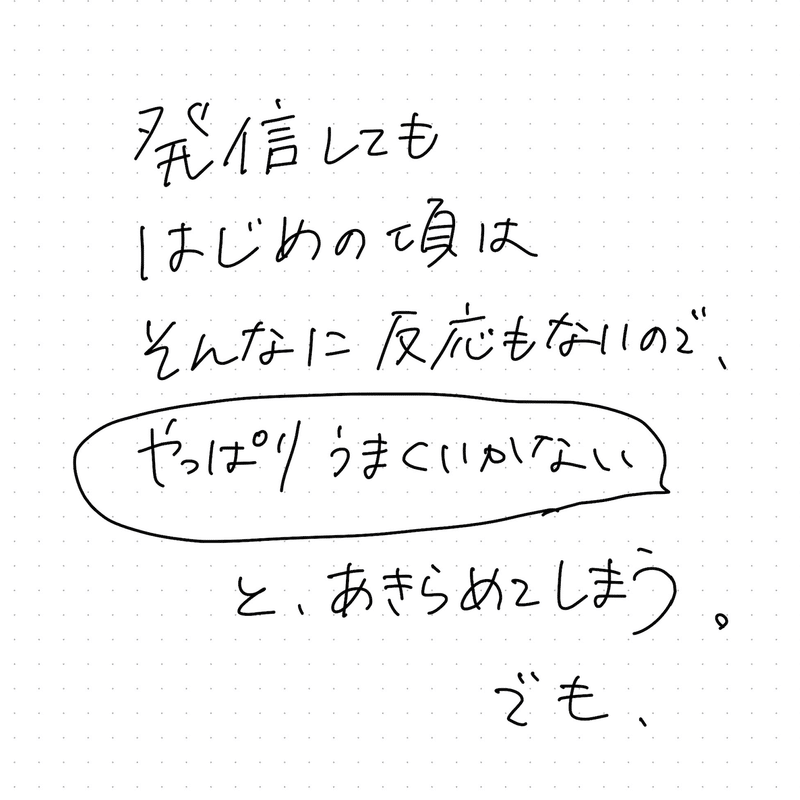 発信しても
はじめの頃は
そんなに反応もないので、
やっぱりうまくいかない
と、あきらめてしまう。
でも、